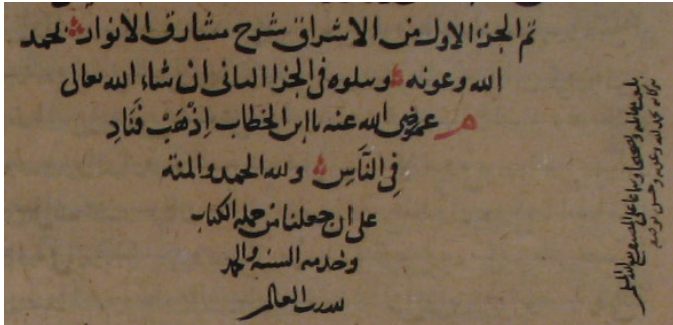 تم الجزء الاول من الاشراق شرح مشارق الانوار بحمد
الله وعونه وسلوه في الجزا الثاني ان شاء الله تعالى
م عمر رضي الله عنه يا ابن الخطاب اِذْهَبْ فَنَادِ
فِي النَّاسِ ولله الحمد والمنة
على ان جعلنا من حمله الكتاب
وخدمه السنه والحمد
لله رب العالم